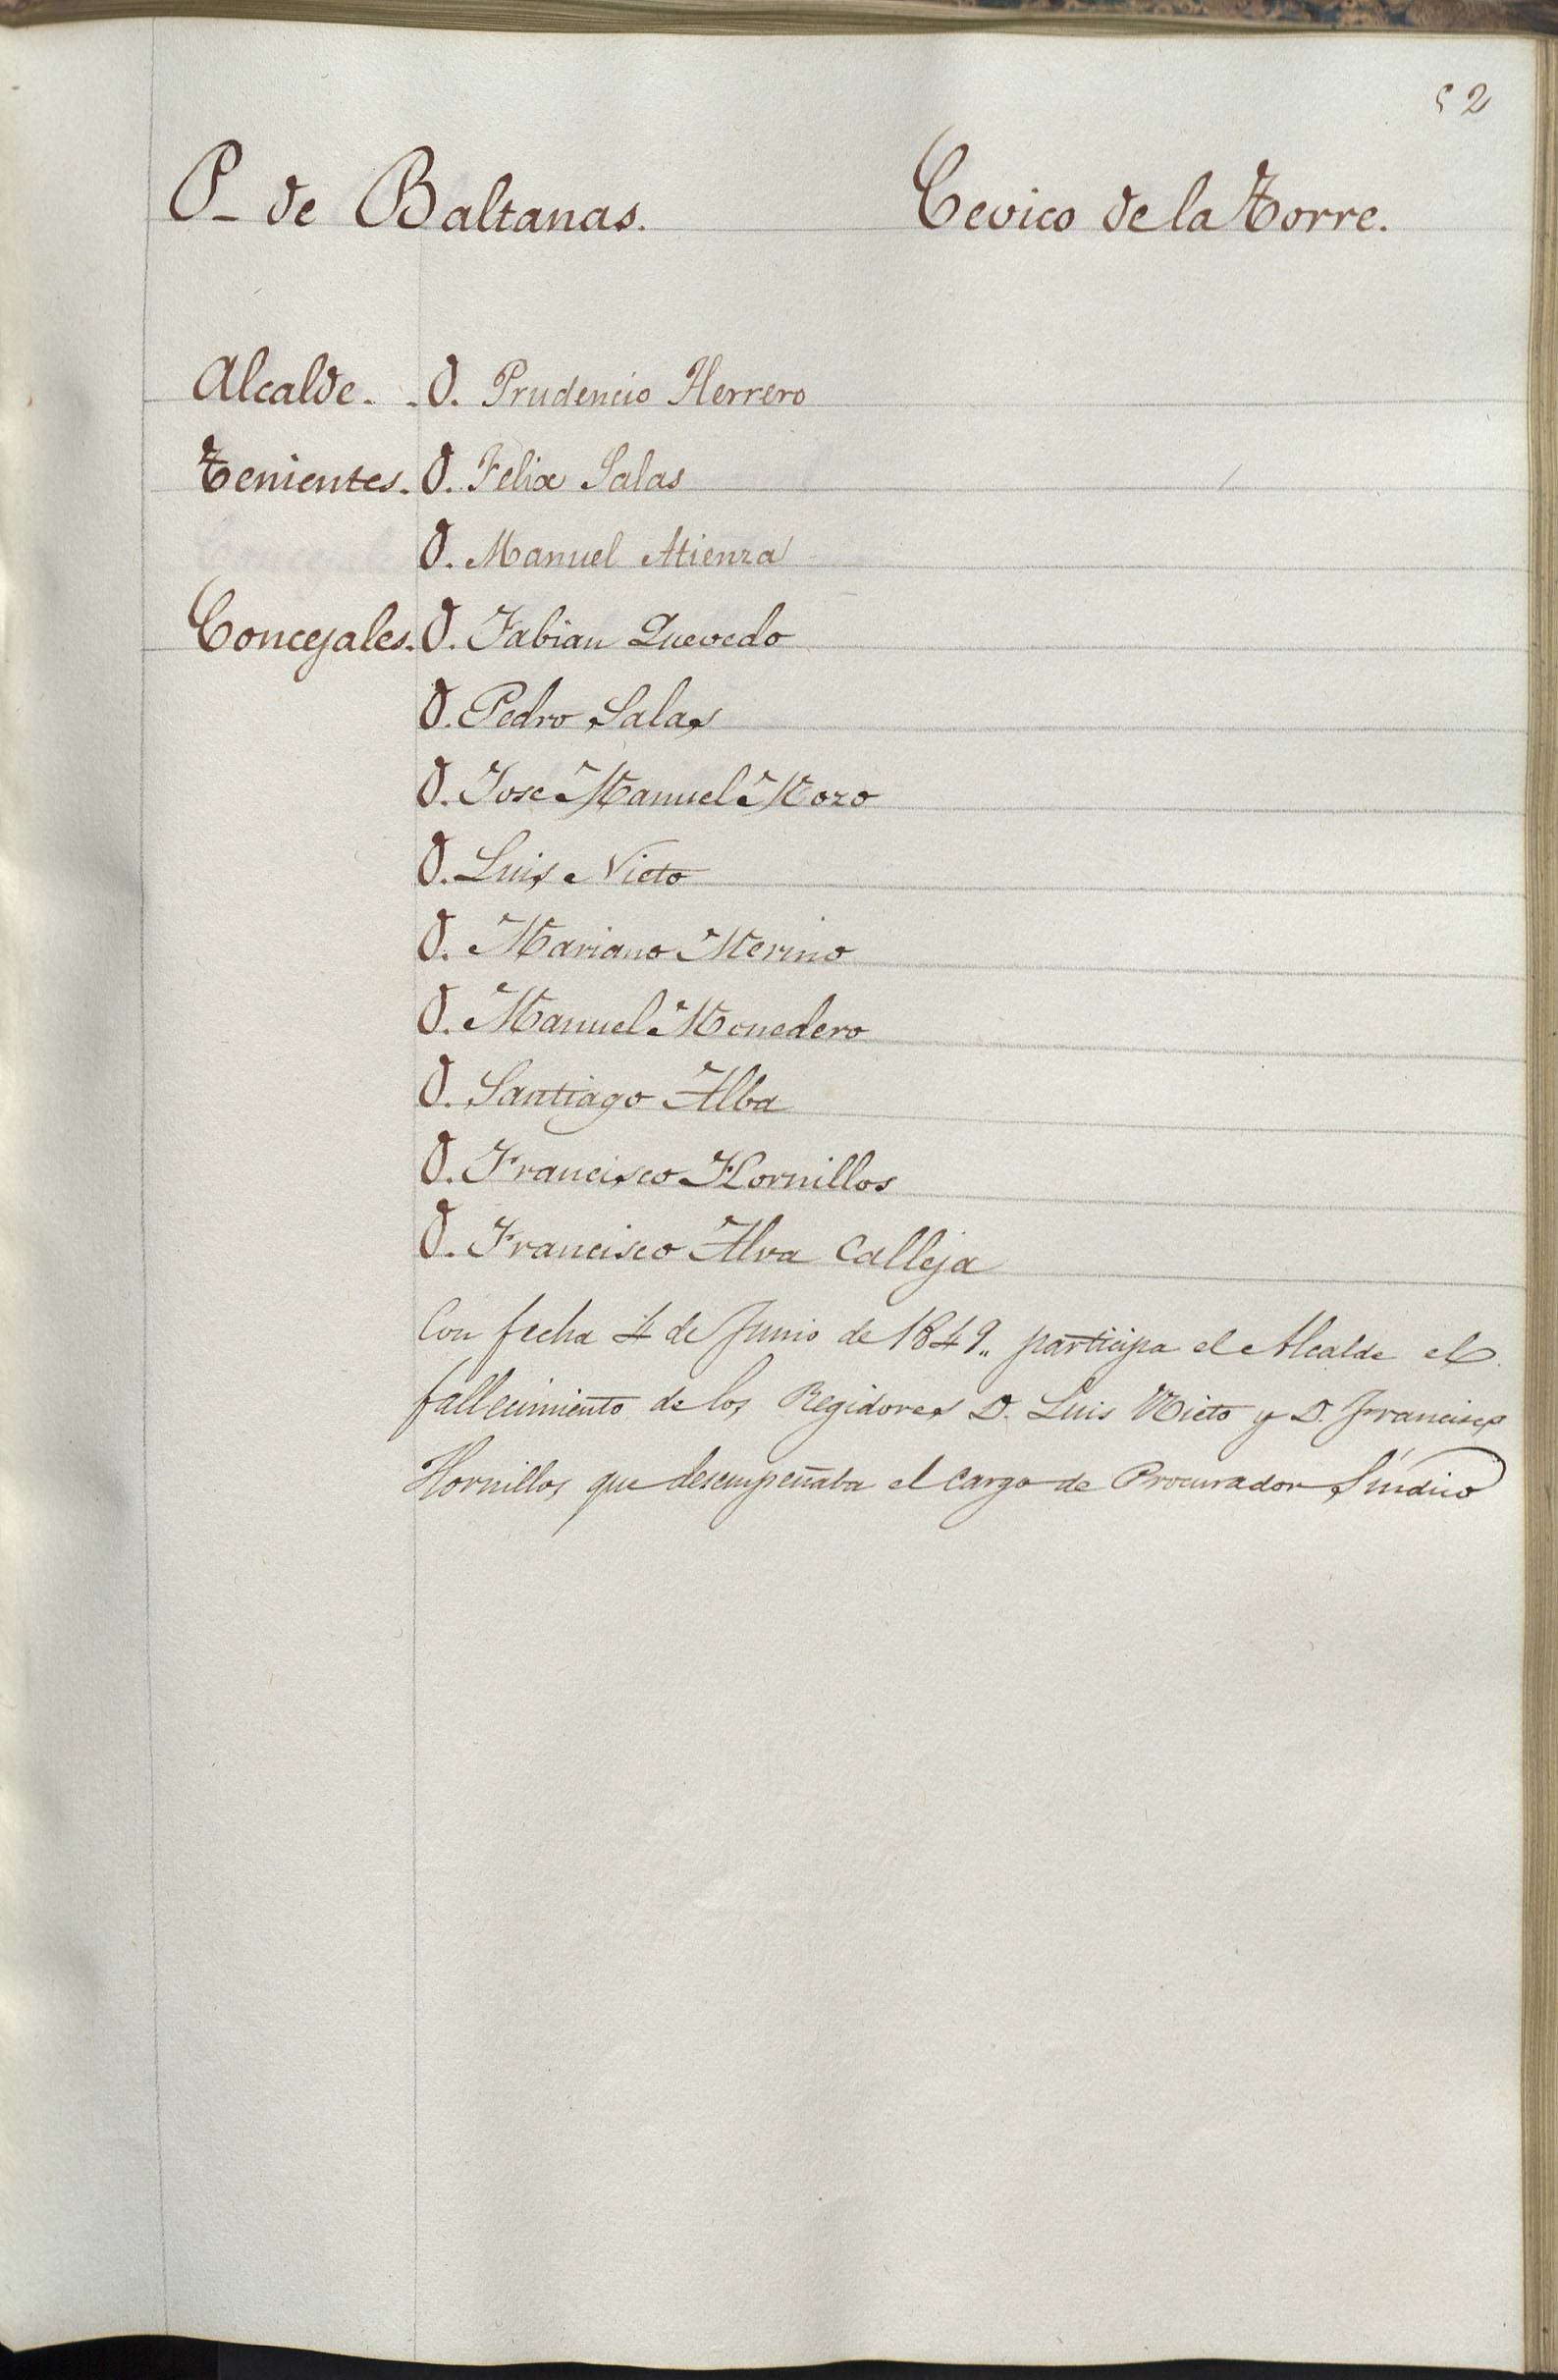 52
P_ de Baltanas. Cevico de la Torre.
Alcalde. . D. Prudencio Herrero
Tenientes. D. Felix Salas
D. Manuel Atienza
Concejales. D. Fabian Quevedo
D. Pedro Salas
D. Jose Manuel Mozo
D. Luis Nieto
D. Mariano Merino
D. Manuel Monedero
D. Santiago Alba
D. Francisco Hornillos
D. Francisco Alva Calleja
Con fecha 4 de Junio de 1849,, participa el Alcalde el
fallecimiento de los Regidores D. Luis Nieto y D. Francisco
Hornillos que desempeñaba el cargo de Procurador Síndico